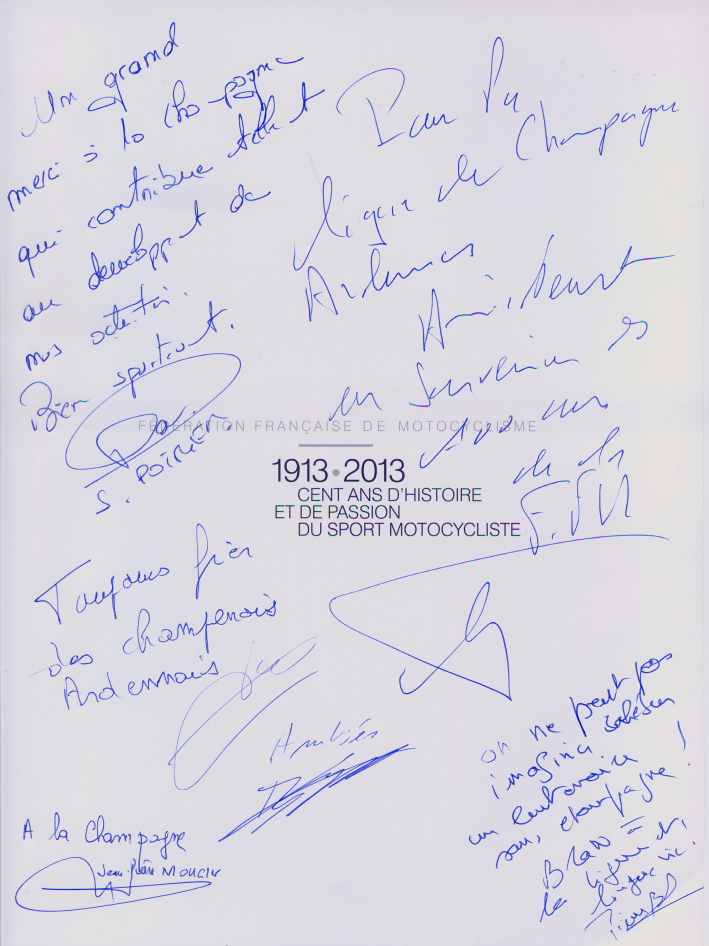 Un grand
merci à la Champagne
qui contribue
au développt de
nos
Bien sportivnt.
S. POIRIER
Pour la
Ligue de Champagne
Ardennes
en souvenir
de la
F.F.M
FÉDÉRATION FRANÇAISE DE MOTOCYCLISME
1913•2013
CENT ANS D'HISTOIRE
ET DE PASSION
DU SPORT MOTOCYCLISTE
Toujours fier
des champenois
Ardennais
Amitiés
A la Champagne
Jean-Pierre MOUCIN
on ne peut pas
imaginer
un centenaire
sans champagne!
Bravo à
la ligue et